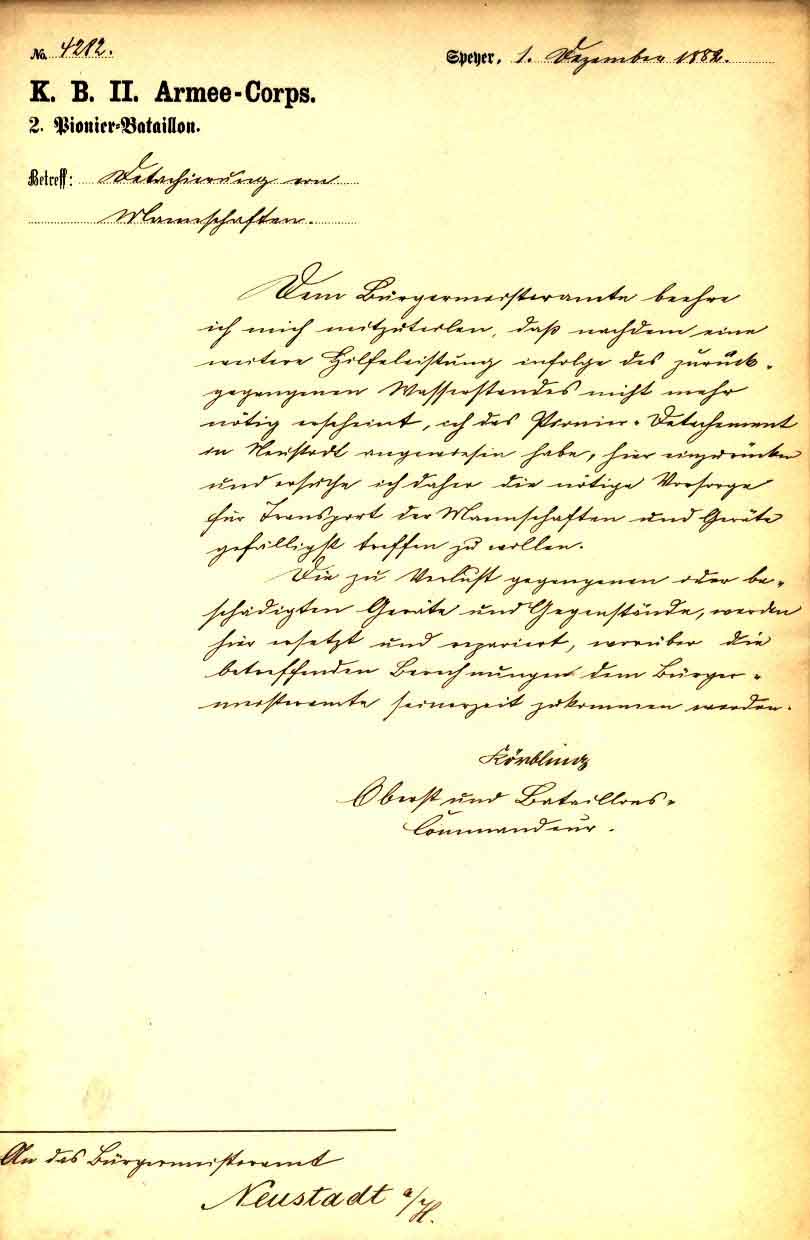 No. 4282. Speyer, 1. Dezember 1882.
K. B. II. Armee-Corps.
2. Pionier-Bataillon.
Betreff: Detachierung von
Mannschaften.
Dem Bürgermeisteramte beehre
ich mich mitzuteilen, daß nachdem eine
weitere Hilfeleistung infolge des zurück-
gegangenen Wasserstandes nicht mehr
nötig erscheint, ich das Pionier-Detachement
in Neustadt angewiesen habe, hier einzurücken
und ersuche ich daher die nötige Vorsorge
für Transport der Mannschaften und Geräte
gefälligst treffen zu wollen.
Die zu Verlust gegangenen oder be-
schädigten Geräte und Gegenstände, werden
hier ersetzt und repariert, worüber die
betreffenden Berechnungen dem Bürger-
meisteramte seinerzeit zukommen werden.
Oberst und Bataillons-
Commandeur.
An das Bürgermeisteramt
Neustadt a/H.